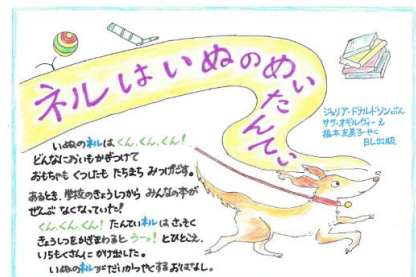 ネルはいぬのめいたんてい
ジュリア・ドナルドソン ぶん
サラ・オギルヴィー え
福本友美子 やく
BL出版
いぬのネルは くん、くん、くん!
どんなにおいもかぎつけて
おもちゃも くつしたも たちまち みつけだす。
あるとき、学校のきょうしつから みんなの本が
ぜんぶ なくなっていた!
くん、くん、くん! たんていネルは さっそく
きょうしつをかぎまわると うーっ! とひとこえ、
いちもくさんに かけ出した。
いぬのネルが だいかつやくする おはなし。